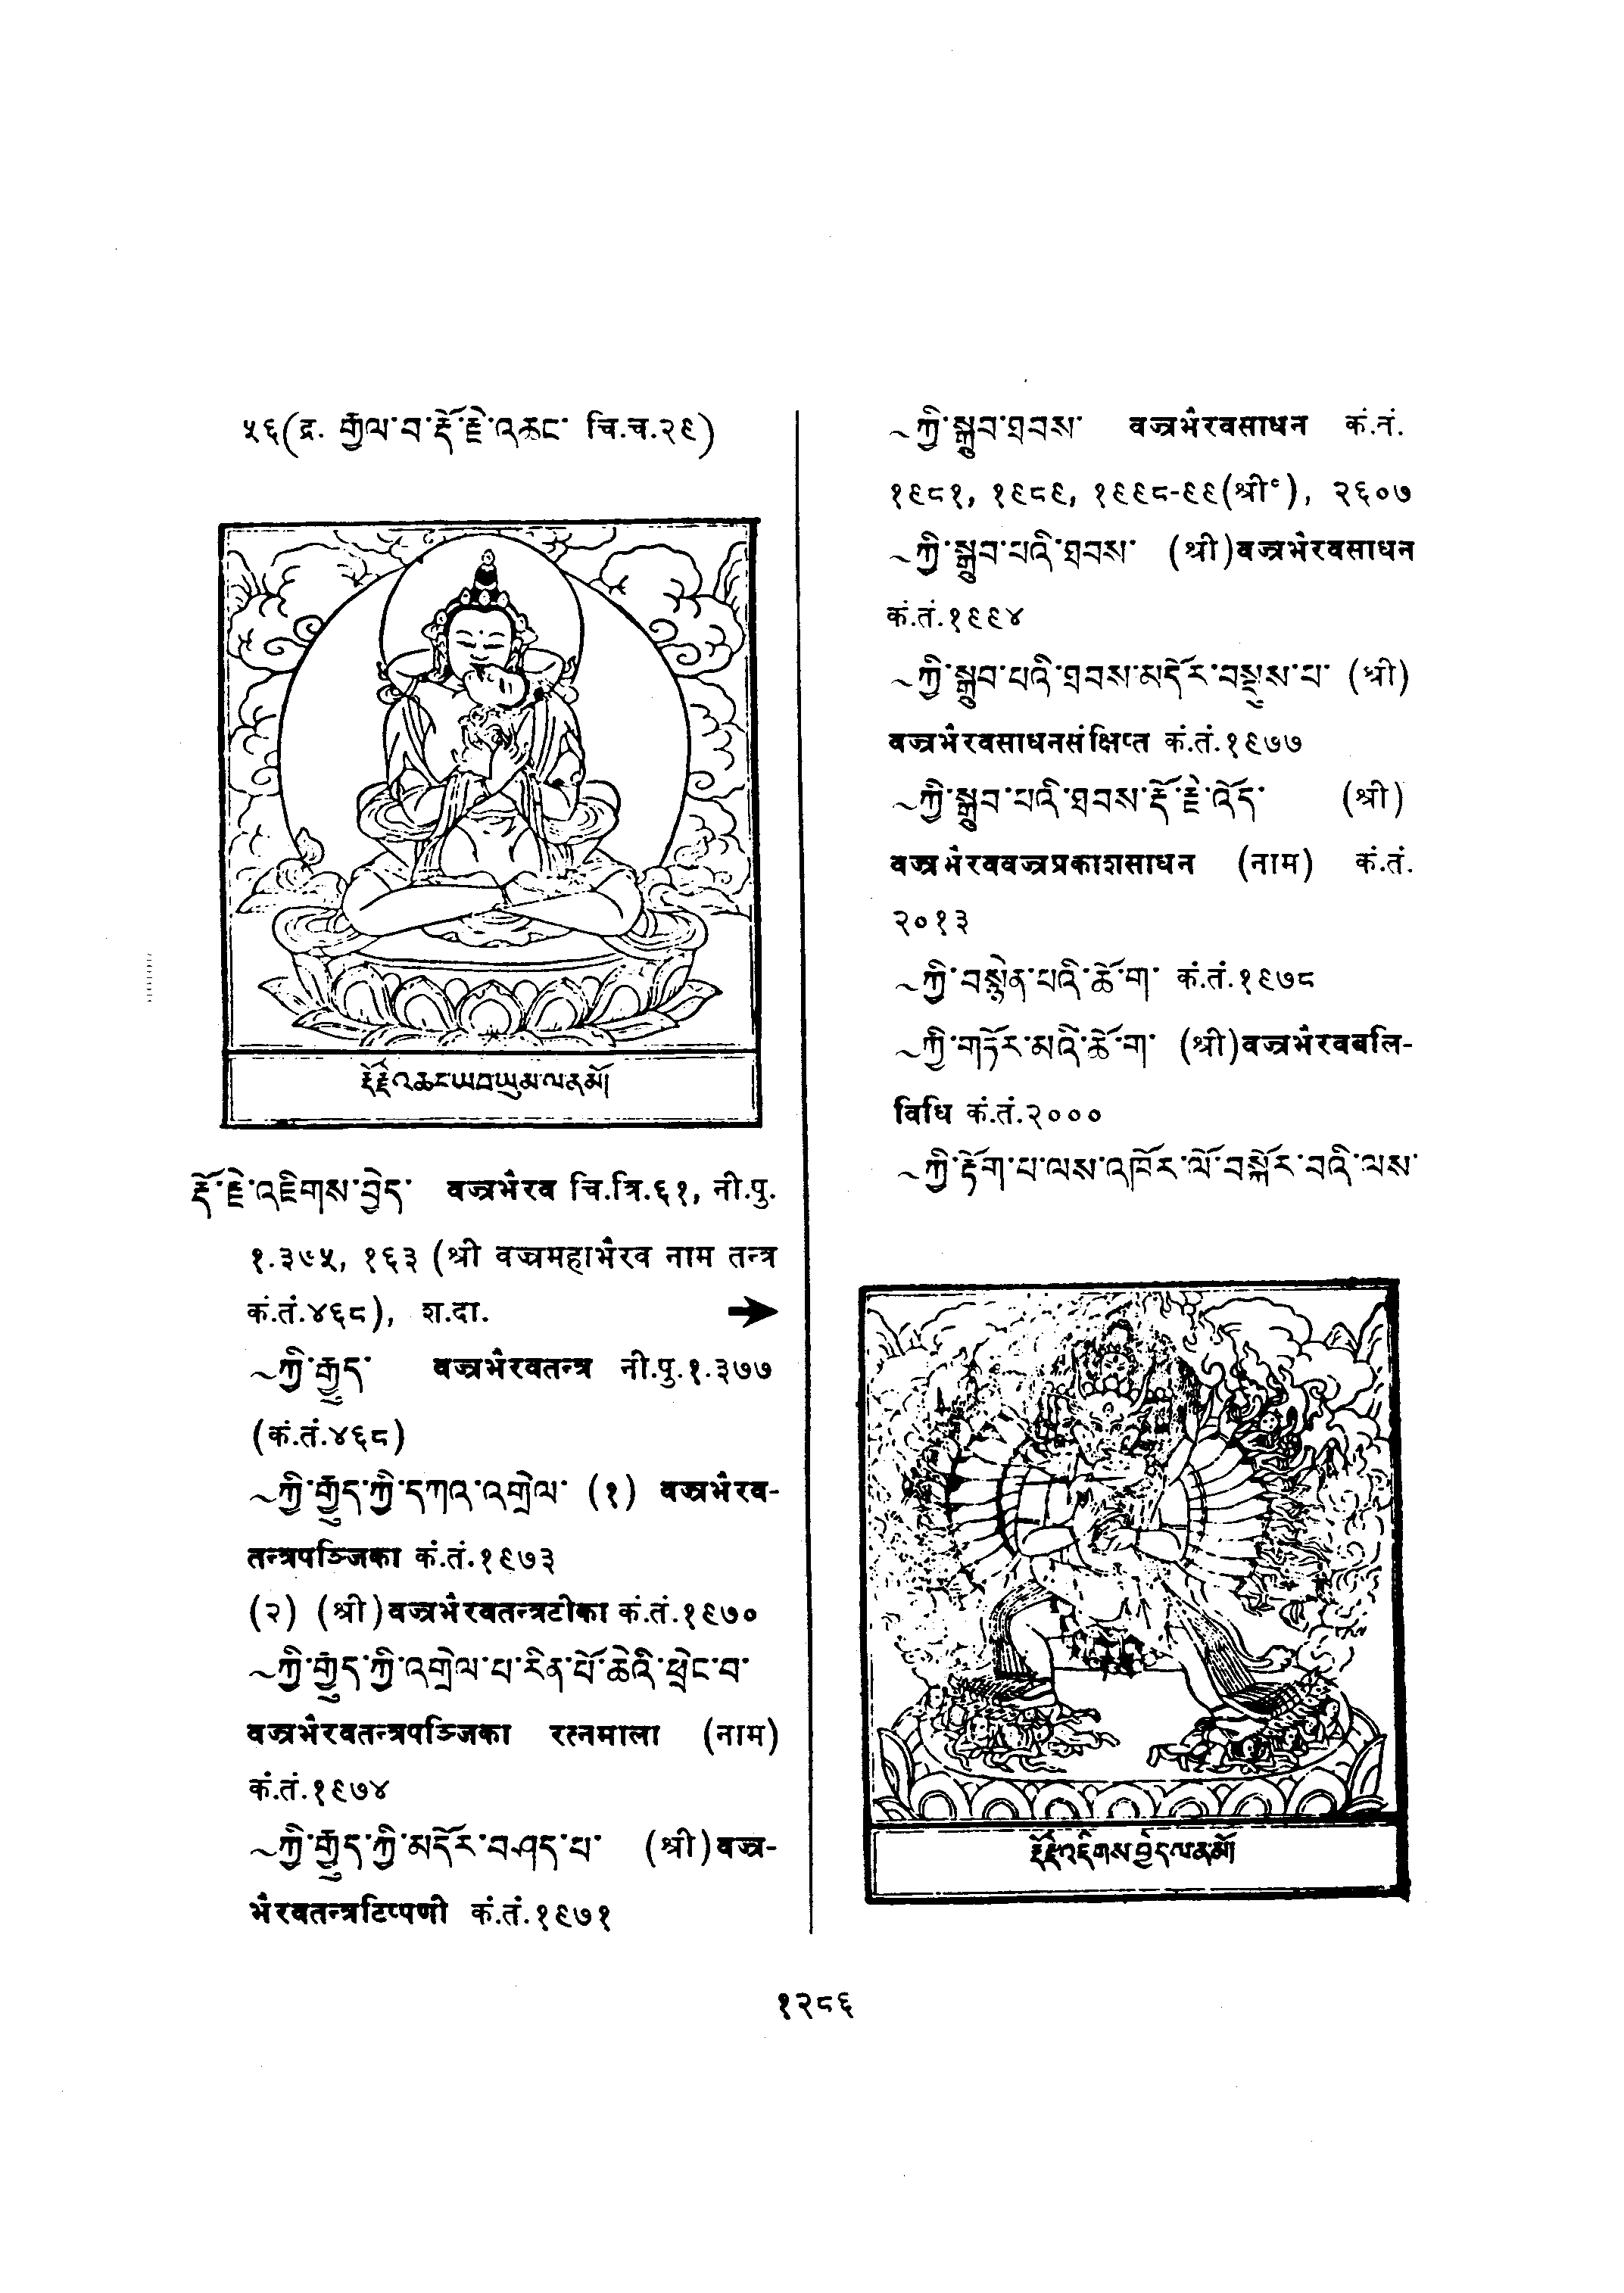 ५६(द्र. རྒྱལ་བ་རྡོ་རྗེ་འཆང་ चि.च.२९)
རྡོ་རྗེ་འཆང་ཡབ་ཡུམ་ལ་ན་མོ།
རྡོ་རྗེ་འཇིགས་བྱེད་ वज्रभैरव चि.त्रि.६१, नी.पु.
१.३७५, १६३ (श्री वज्रमहाभैरव नाम तन्त्र
कं.तं.४६८), श.दा. ➔
~ཀྱི་རྒྱུད་ वज्रभैरवतन्त्र नी.पु.१.३७७
(कं.तं.४६८)
~ཀྱི་རྒྱུད་ཀྱི་དཀའ་འགྲེལ་ (१) वज्रभैरव-
तन्त्रपञ्जिका कं.तं.१९७३
(२) (श्री)वज्रभैरवतन्त्रटीका कं.तं.१९७०
~ཀྱི་རྒྱུད་ཀྱི་འགྲེལ་པ་རིན་པོ་ཆེའི་ཕྲེང་བ་
वज्रभैरवतन्त्रपञ्जिका रत्नमाला (नाम)
कं.तं.१९७४
~ཀྱི་རྒྱུད་ཀྱི་མདོར་བཤད་པ་ (श्री)वज्र-
भैरवतन्त्रटिप्पणी कं.तं.१९७१
~ཀྱི་སྒྲུབ་ཐབས་ वज्रभैरवसाधन कं.तं.
१९८१, १९८९, १९९८-९९(श्री॰), २६०७
~ཀྱི་སྒྲུབ་པའི་ཐབས་ (श्री)वज्रभैरवसाधन
कं.तं.१९९४
~ཀྱི་སྒྲུབ་པའི་ཐབས་མདོར་བསྡུས་པ་ (श्री)
वज्रभैरवसाधनसंक्षिप्त कं.तं.१९७७
~ཀྱི་སྒྲུབ་པའི་ཐབས་རྡོ་རྗེ་འོད་ (श्री)
वज्रभैरववज्रप्रकाशसाधन (नाम) कं.तं.
२०१३
~ཀྱི་བསྙེན་པའི་ཆོ་ག་ कं.तं.१९७८
~ཀྱི་གཏོར་མའི་ཆོ་ག་ (श्री)वज्रभैरवबलि-
विधि कं.तं.२०००
~ཀྱི་རྟོག་པ་ལས་འཁོར་ལོ་བསྐོར་བའི་ལས་
རྡོ་རྗེ་འཇིགས་བྱེད་ལ་ན་མོ།
१२८६